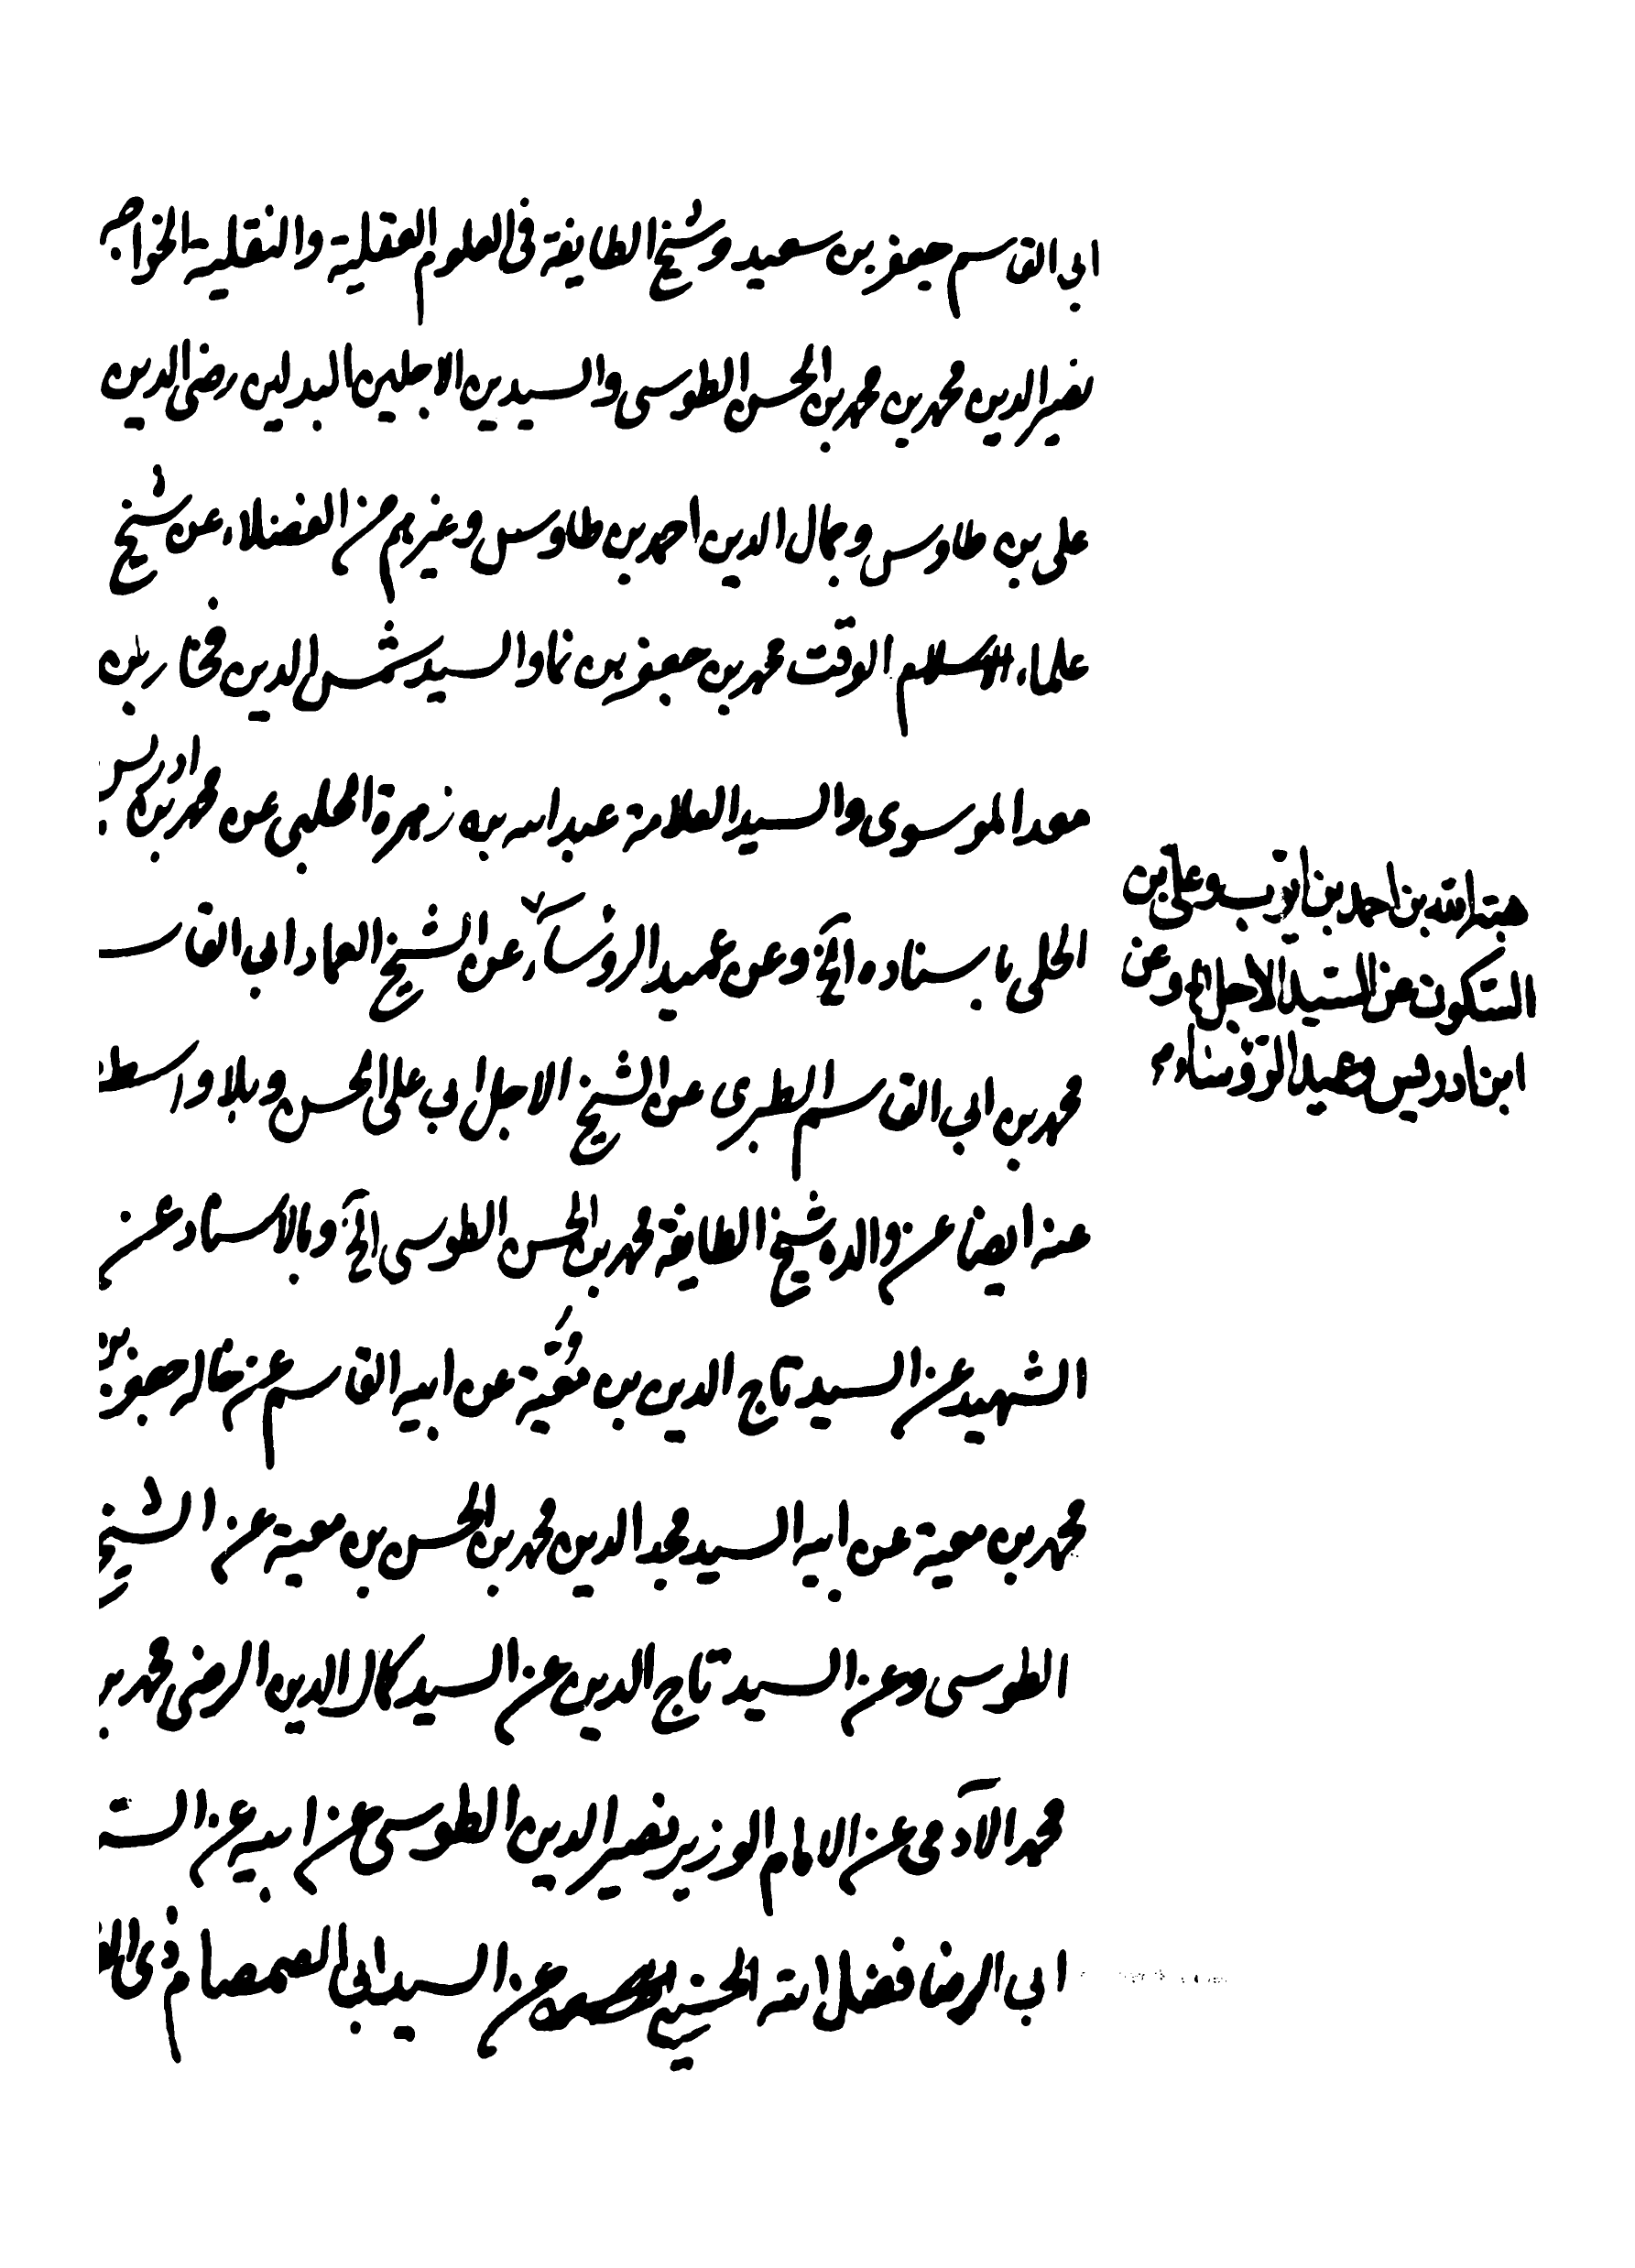 ابى القاسم جعفر بن سعيد وشيخ الطايفة فى العلوم العقلية والنقلية الخواجه
نصير الدين محمد بن محمد بن الحسن الطوسى والسيدين الاجلين البدلين رضى الدين
على بن طاوس وجمال الدين احمد بن طاوس وغيرهم من الفضلاء عن شيخ
علماء الوقت محمد بن جعفر بن نما والسيد شمس الدين فخار بن
معد الموسوى والسيد العلامة عبد الله بن زهرة الحلبى عن محمد بن ادريس
الحلى باسناده الخ وعن عميد الرؤساء عن الشيخ العماد ابى القاسـ
محمد بن ابى القاسم الطبرى عن الشيخ الاجل ابى على الحسن وبلا واسطـ
عنه ايضا عن والده شيخ الطايفة محمد بن الحسن الطوسى الخ وبالاسناد عن
الشهيد عن السيد تاج الدين بن مُعَيّة عن ابيه القاسم عن خاله جعفر بن
محمد بن معية عن ابيه السيد مجد الدين محمد بن الحسن بن معية عن الشيخ
الطوسى وعن السيد تاج الدين عن السيد كمال الدين الرضى محمد بن
محمد الآدمى عن الامام الوزير نصير الدين الطوسى عن ابيه عن السـ
ابى الرضا فضل الله الحسينى عن السيد ابى الصمصام ذى الفـ
هبة الله بن احمد بن ايوب وعلى بن
السكون عن السيد الاجل الخ وعن
ابن ادريس وعميد الرؤساء